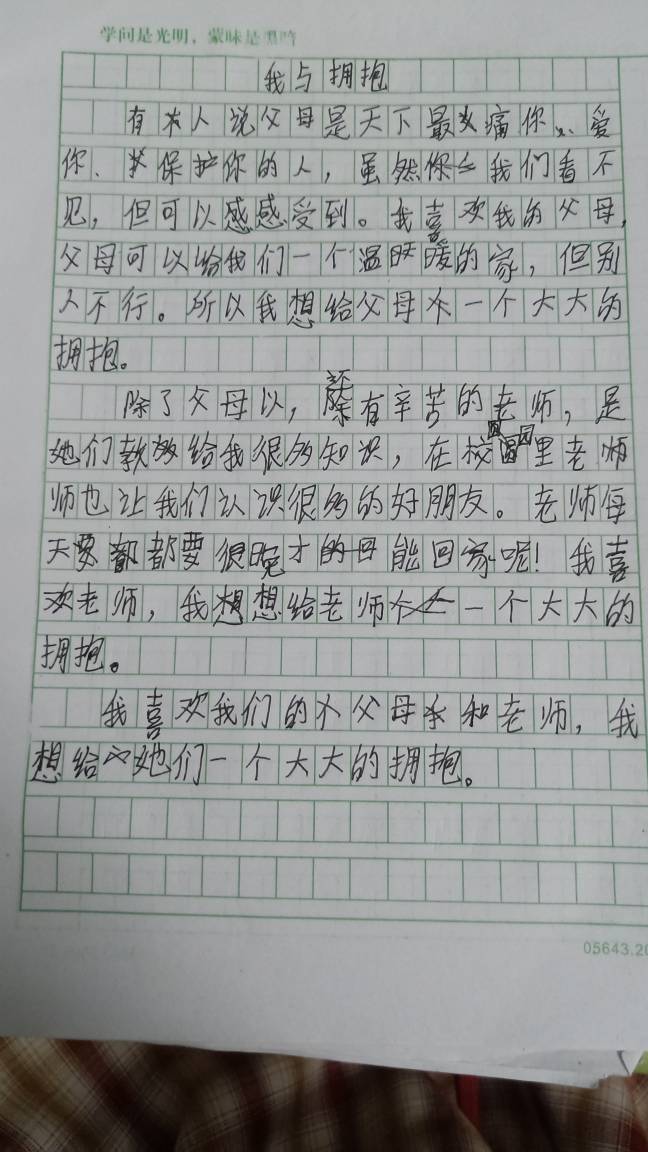 学问是光明，蒙昧是黑暗
我与拥抱
有本人说父母是天下最痛你、爱
你、保护你的人，虽然你我们看不
见，但可以感感受到。我喜欢我的父母，
父母可以给我们一个温暖的家，但别
人不行。所以我想给父母个一个大大的
拥抱。
除了父母以，还有辛苦的老师，是
她们教给我很多知识，在校园里老师
师也让我们认识很多的好朋友。老师每
天要都都要很晚才的能回家呢！我喜
欢老师，我想想给老师个一个大大的
拥抱。
我喜欢我们的个父母和老师，我
想给她们一个大大的拥抱。
05643.20